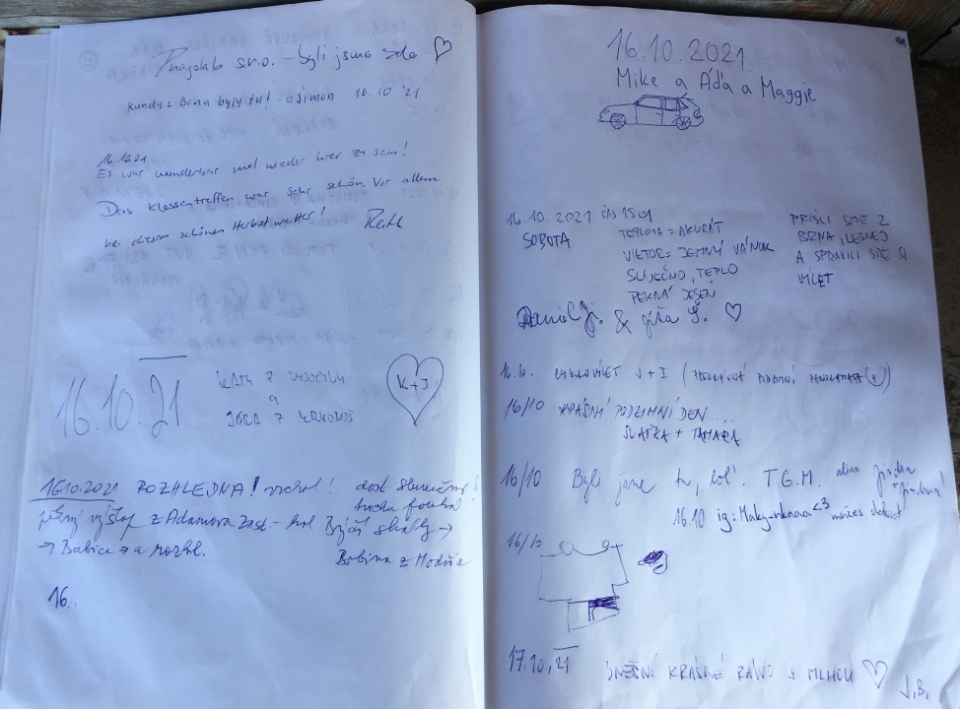 s.r.o. – byli jsme zde ♡
z Brna byly tu! Šimon 16.10 '21
16.10.21
Es war wunderbar mal wieder hier zu sein!
Das Klassentreffen war sehr schön. Vor allem
bei diesem schönen Herbstwetter!
16.10.21
KÁTA Z VYSOČINY
a
Z KRKONOŠ
K+J
16.10.2021 ROZHLEDNA! vrchol! dost slunečno!
trochu foukal
pěšný výšlap z Adamova zast - kol Býčí skály →
→ Babice → a rozhl.
Bobina z Modřic
16..
16.10.2021
Mike a Áďa a Maggie
16.10.2021 ČAS 15:01
SOBOTA
TEPLOTA = AKURÁT
VIETOR = JEMNÝ VÁNOK
SLNEČNO, TEPLO
PEKNÁ JESEŇ
PRIŠLI SME Z
BRNA, LESNEJ
A SPRAVILI SME SI
VÝLET
Daniel J. & Š. ♡
16.10. CYKLOVÝLET J + I
16/10 KRÁSNÝ PODZIMNÍ DEN...
+ TAMARA
16/10 Byli jsme tu, lol. T.G.M. alias
16.10 ig: <3
16/10
17.10.21 DNEŠNÍ KRÁSNÉ RÁNO S MLHOU ♡
J.B.